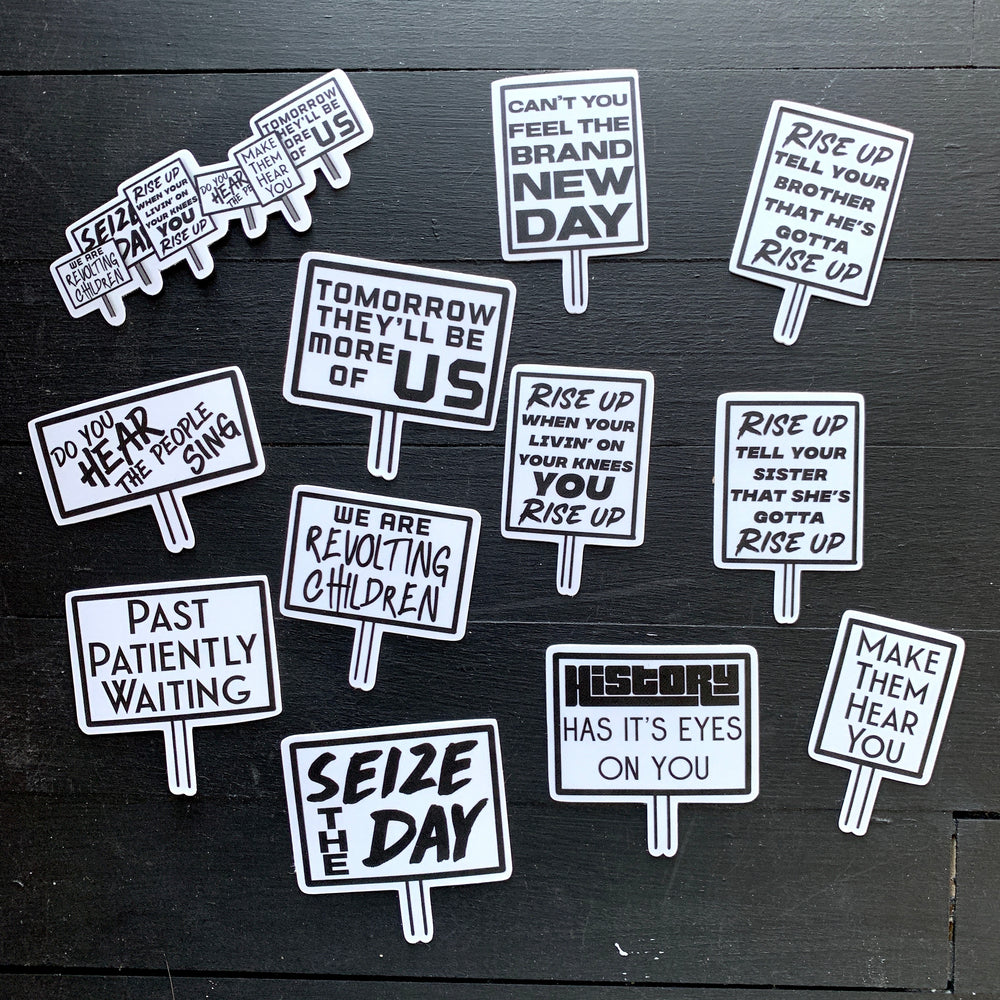 TOMORROW
THEY'LL BE
MORE
OF US
MAKE
THEM
HEAR
YOU
DO YOU
HEAR
THE
RISE UP
WHEN YOUR
LIVIN' ON
YOUR KNEES
YOU
RISE UP
SEIZE
WE ARE
REVOLTING
CHILDREN
CAN'T YOU
FEEL THE
BRAND
NEW
DAY
RISE UP
TELL YOUR
BROTHER
THAT HE'S
GOTTA
RISE UP
TOMORROW
THEY'LL BE
MORE
OF US
DO YOU
HEAR
THE PEOPLE
SING
RISE UP
WHEN YOUR
LIVIN' ON
YOUR KNEES
YOU
RISE UP
RISE UP
TELL YOUR
SISTER
THAT SHE'S
GOTTA
RISE UP
WE ARE
REVOLTING
CHILDREN
PAST
PATIENTLY
WAITING
HISTORY
HAS IT'S EYES
ON YOU
MAKE
THEM
HEAR
YOU
SEIZE
THE
DAY